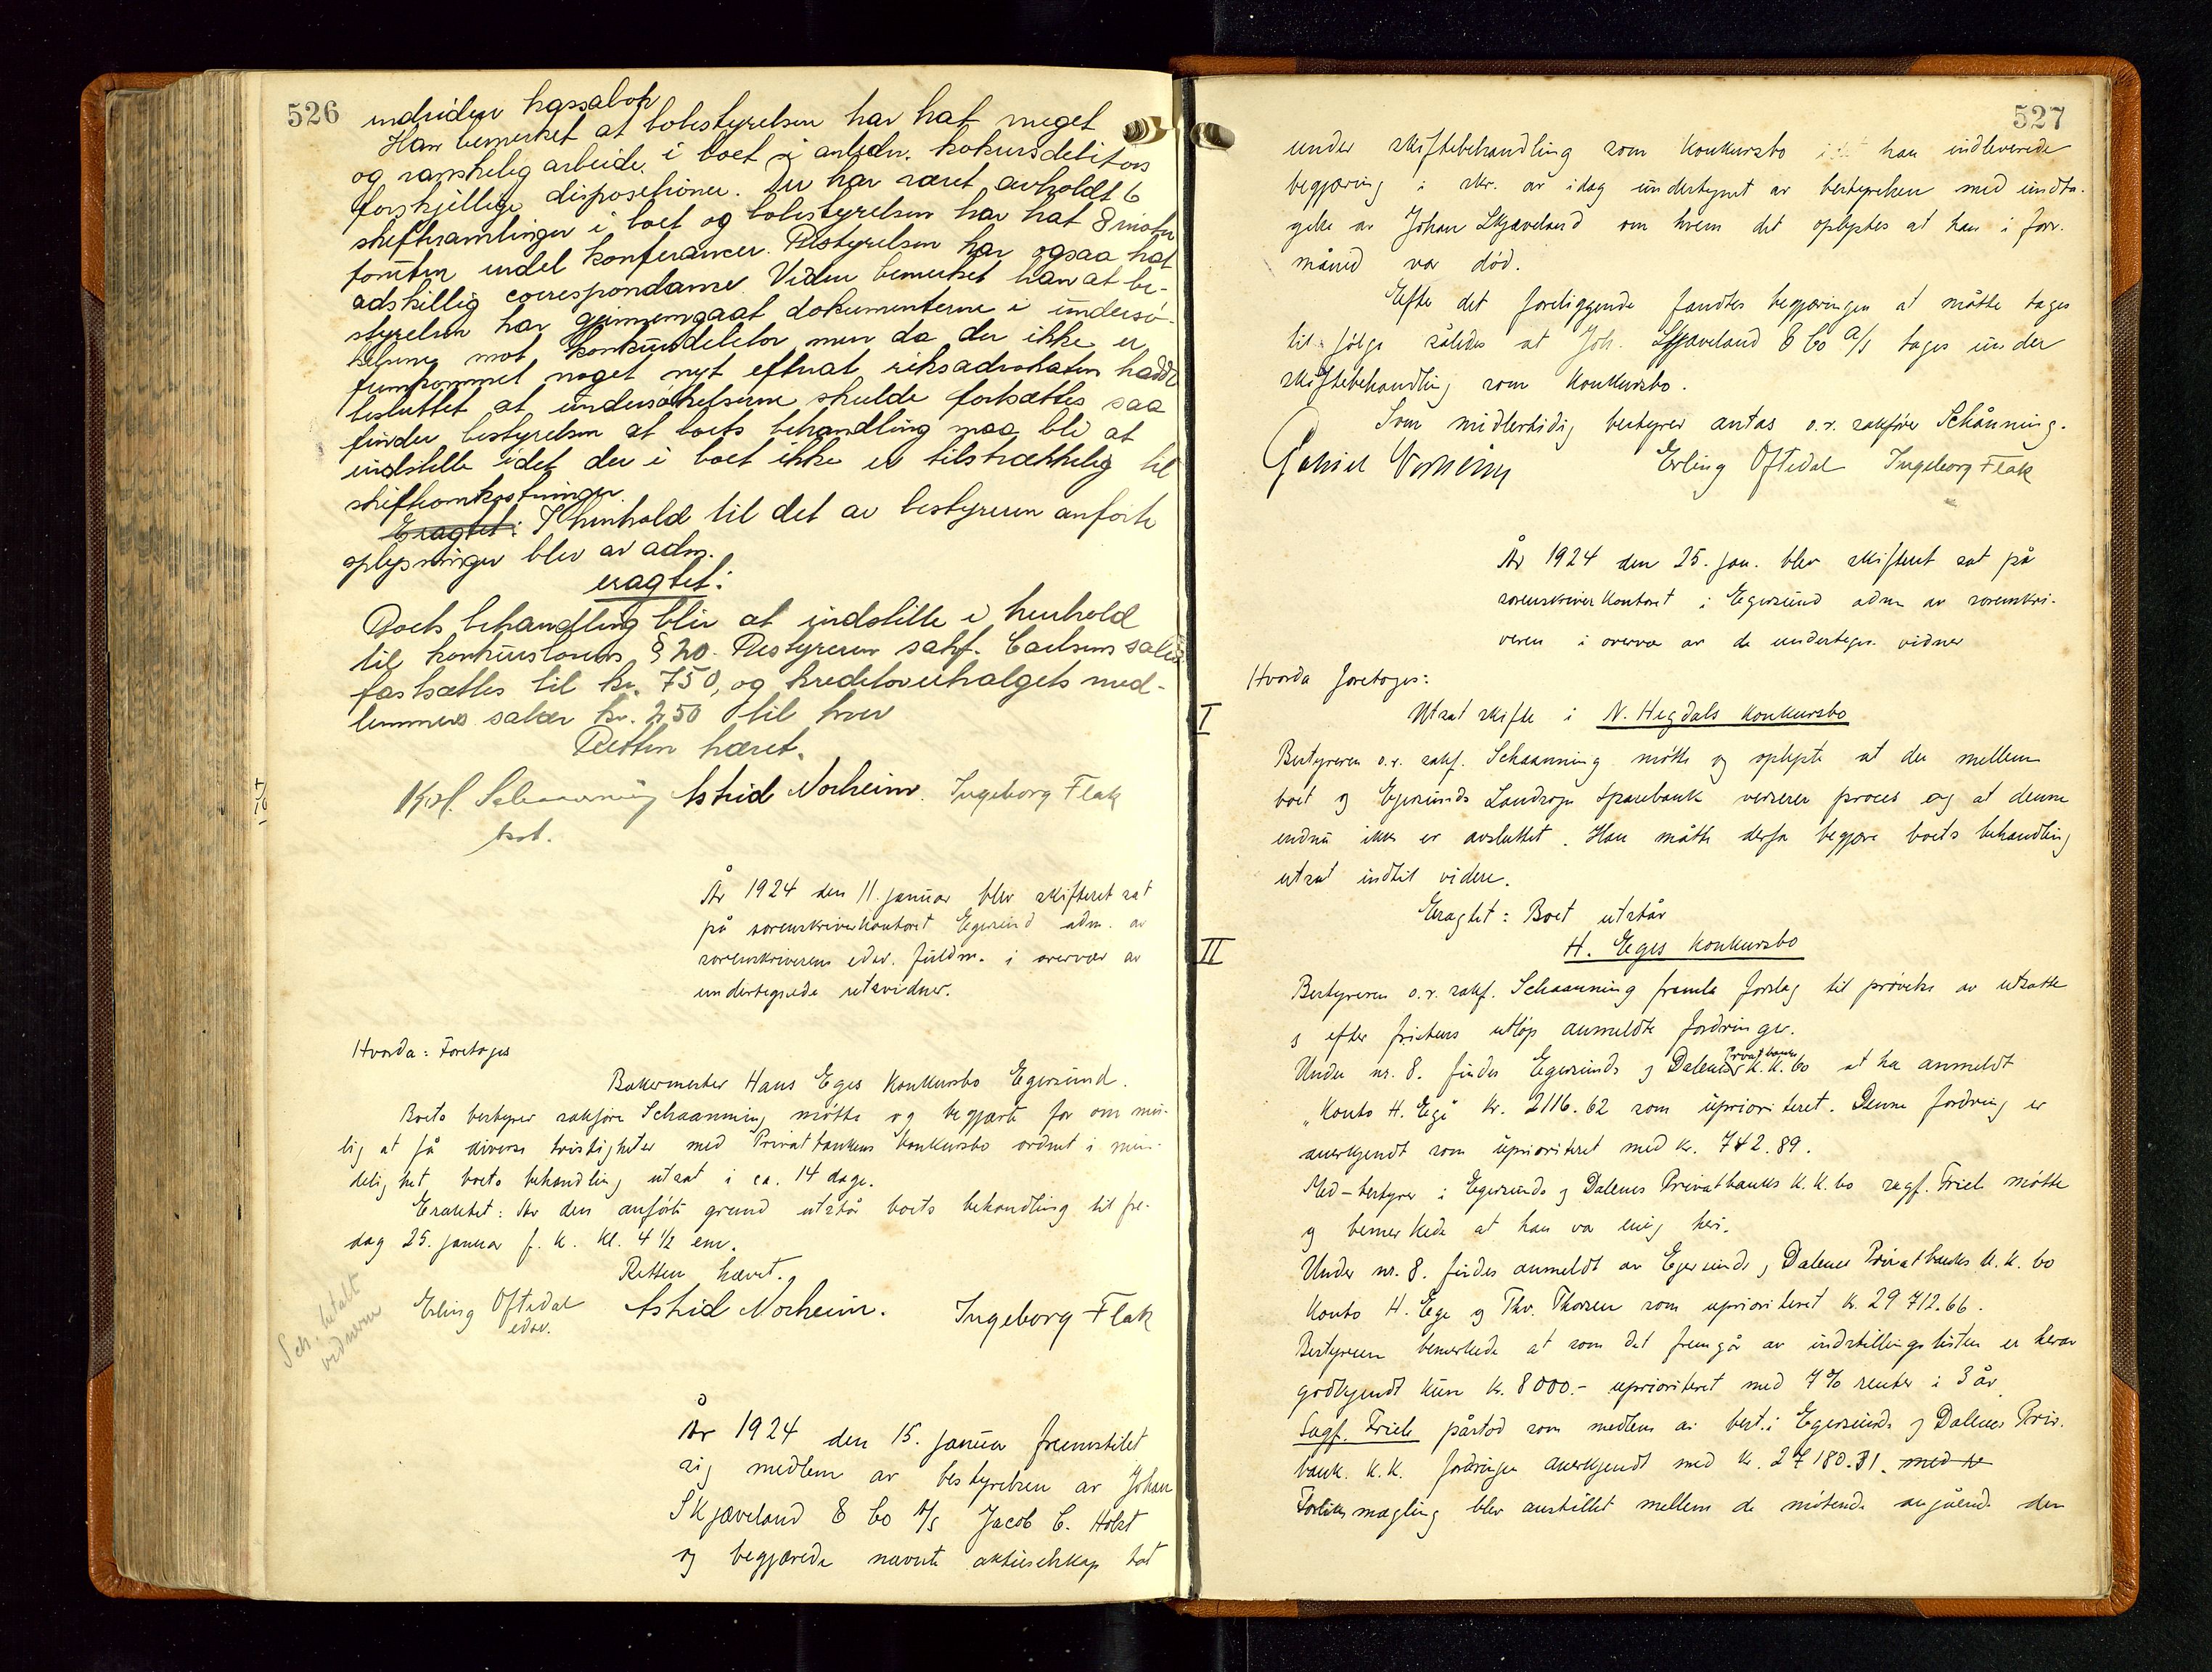 526
indviden kassabok
Han bemerket at bobestyrelsen har hat meget
og vanskelig arbeide i boet i anledn. kokursdebitors
forskjellige dispositioner. Der har været avholdt 6
skiftesamlinger i boet og bobestyrelsen har hat 8 møter
foruten endel konferancer. Bestyrelsen har ogsaa hat
adskillig correspondance. Viden bemerket han at be-
styrelsen har gjennemgaat dokumenterne i undersø-
kelserne mot konkursdebitor men da der ikke er
fremkommet noget nyt efterat riksadvokaten hadde
besluttet at undersøkelserne skulde fortsættes saa
finder bestyrelsen at boets behandling maa bli at
indstille idet der i boet ikke er tilstrækkelig til
skifteomkostninger.
Eragtet: I henhold til det av bestyreren anførte
oplysninger blev av adm.
eragtet:
Boets behandling blir at indstille i henhold
til konkurslovens § 20. Bestyreren sakf. Carlsens salær
fastsættes til kr. 750, og kreditorutvalgets med-
lemmers salær kr. 250 til hver
Retten hævet.
Kjel. Schaanning Astrid Norheim. Ingeborg Flak
kst.
År 1924 den 11. januar blev skifteret sat
på sorenskriverkontoret Egersund adm. av
sorenskriverens edsv. fuldm. i overvær av
undertegnede retsvidner.
Hvorda: Foretoges
Bakermester Hans Eges konkursbo Egersund.
Boets bestyrer sakfører Schaanning møtte og begjærte for om mu-
lig at få diverse tvistigheter med Privatbankens konkursbo ordnet i min-
delighet, boets behandling utsat i ca. 14 dage.
Eraktet: Av den anførte grund utstår boets behandling til fre-
dag 25. januar f. k. kl. 4 1/2 em.
Retten hævet.
Erling Oftedal Astrid Norheim. Ingeborg Flak
edsv.
Sch. betalt
vidnerne
År 1924 den 15. januar fremstilet
sig medlem av bestyrelsen av Johan
Skjæveland & Co A/S Jacob C. Holst
og begjærede nævnte aktieselskap tat
527
under skiftebehandling som konkursbo idet han indleverede
begjæring i skr. av idag undertegnet av bestyrelsen med undta-
gelse av Johan Skjæveland om hvem det oplystes at han i forr.
måned var død.
Efter det foreliggende fandtes begjæringen at måtte tages
til følge således at Joh. Skjæveland & Co A/S tages under
skiftebehandling som konkursbo.
Som midlertidig bestyrer antas o.r. sakfører Schånning.
Erling Oftedal Ingeborg Flak
År 1924 den 25. jan. blev skifteret sat på
sorenskriverkontoret i Egersund adm av sorenskri-
veren i overvær av de undertegn. vidner
Hvorda foretoges:
I
Utsat skifte i N. Hegdals konkursbo
Bestyreren o.r. sakf. Schaanning møtte og oplyste at der mellem
boet og Egersunds Landsogn Sparebank verserer proces og at denne
endnu ikke er avsluttet. Han måtte derfor begjære boets behandling
utsat indtil videre.
Eragtet: Boet utstår
II
H. Eges konkursbo
Bestyreren o.r. sakf. Schaanning fremla forslag til prøvelse av utsatte
og efter fristens utløp anmeldte fordringer.
Under nr. 8. findes Egersunds og Dalenes Privatbanks K.K. bo at ha anmeldt
"Konto H. Ege" kr. 2116.62 som uprioriteret. Denne fordring er
anerkjendt som uprioriteret med kr. 742.89.
Med-bestyrer i Egersunds og Dalenes Privatbanks K.K. bo sagf. Friele møtte
og bemerkede at han var enig heri.
Under nr. 8. findes anmeldt av Egersunds og Dalenes Privatbanks K.K. bo
Konto H. Ege og Thv. Thorsen som uprioriteret kr. 29 712.66.
Bestyreren bemerkede at som det fremgår av indstillingslisten er herav
godkjendt kun kr. 8000.- uprioriteret med 7% renter i 3 år
Sagf. Friele påstod som medlem av best. i Egersunds og Dalenes Priv.
bank. K.K. fordringen anerkjendt med kr. 27180.31. med kr
Forliksmægling blev anstillet mellem de møtende angående den